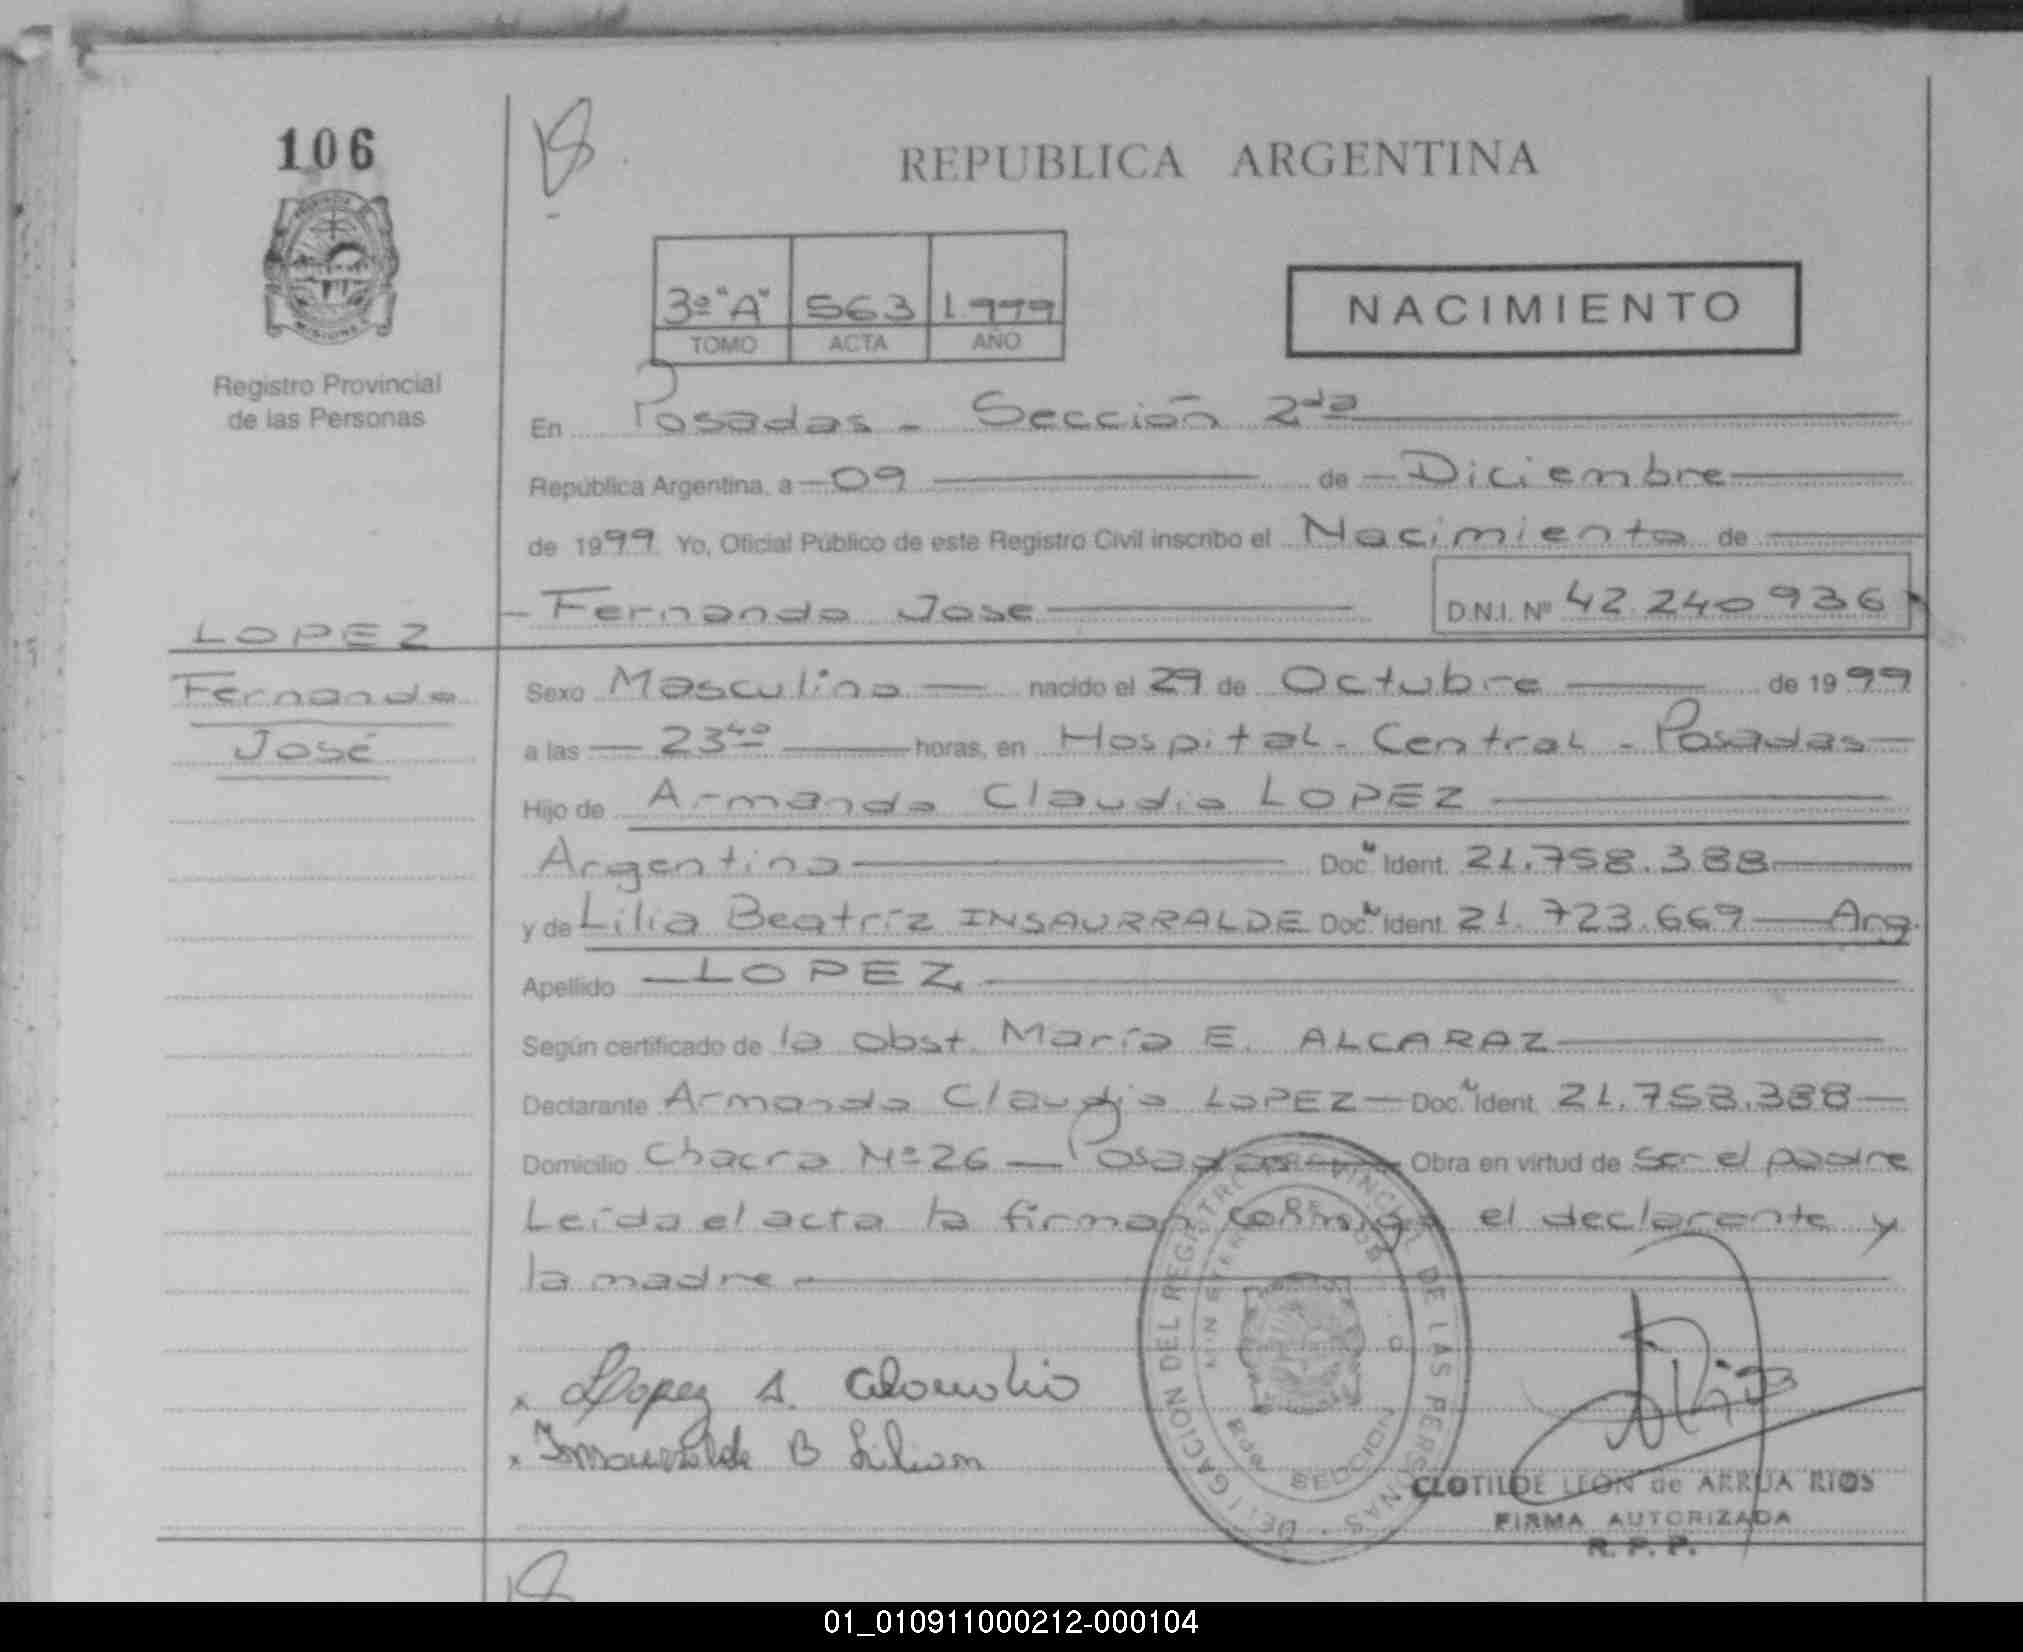 106
REPUBLICA ARGENTINA
3º "A" 563 1.999
TOMO ACTA AÑO
NACIMIENTO
Registro Provincial
de las Personas
En Posadas - Sección 2da
República Argentina, a 09 de Diciembre
de 1999 Yo, Oficial Público de este Registro Civil inscribo el Nacimiento de
Fernando Jose D.N.I. Nº 42.240936
LOPEZ
Fernando
José
Sexo Masculino nacido el 29 de Octubre de 1999
a las 23 40 horas, en Hospital - Central - Posadas
Hijo de Armando Claudio LOPEZ
Argentino Doc. Ident. 21.758.388
y de Lilia Beatríz INSAURRALDE Doc. Ident. 21.723.669 Arg.
Apellido LOPEZ
Según certificado de la obst. María E. ALCARAZ
Declarante Armando Claudio LOPEZ Doc. Ident. 21.758.388
Domicilio Chacra Nº 26 Posadas Obra en virtud de ser el padre
Leída el acta la firman conmigo el declarante y
la madre
x Lopez A. Claudio
x Insaurralde B Lilian
DELEGACION DEL REGISTRO PROVINCIAL DE LAS PERSONAS
CLOTILDE LEON de ARRUA RIOS
FIRMA AUTORIZADA
R. P. P.
01_010911000212-000104